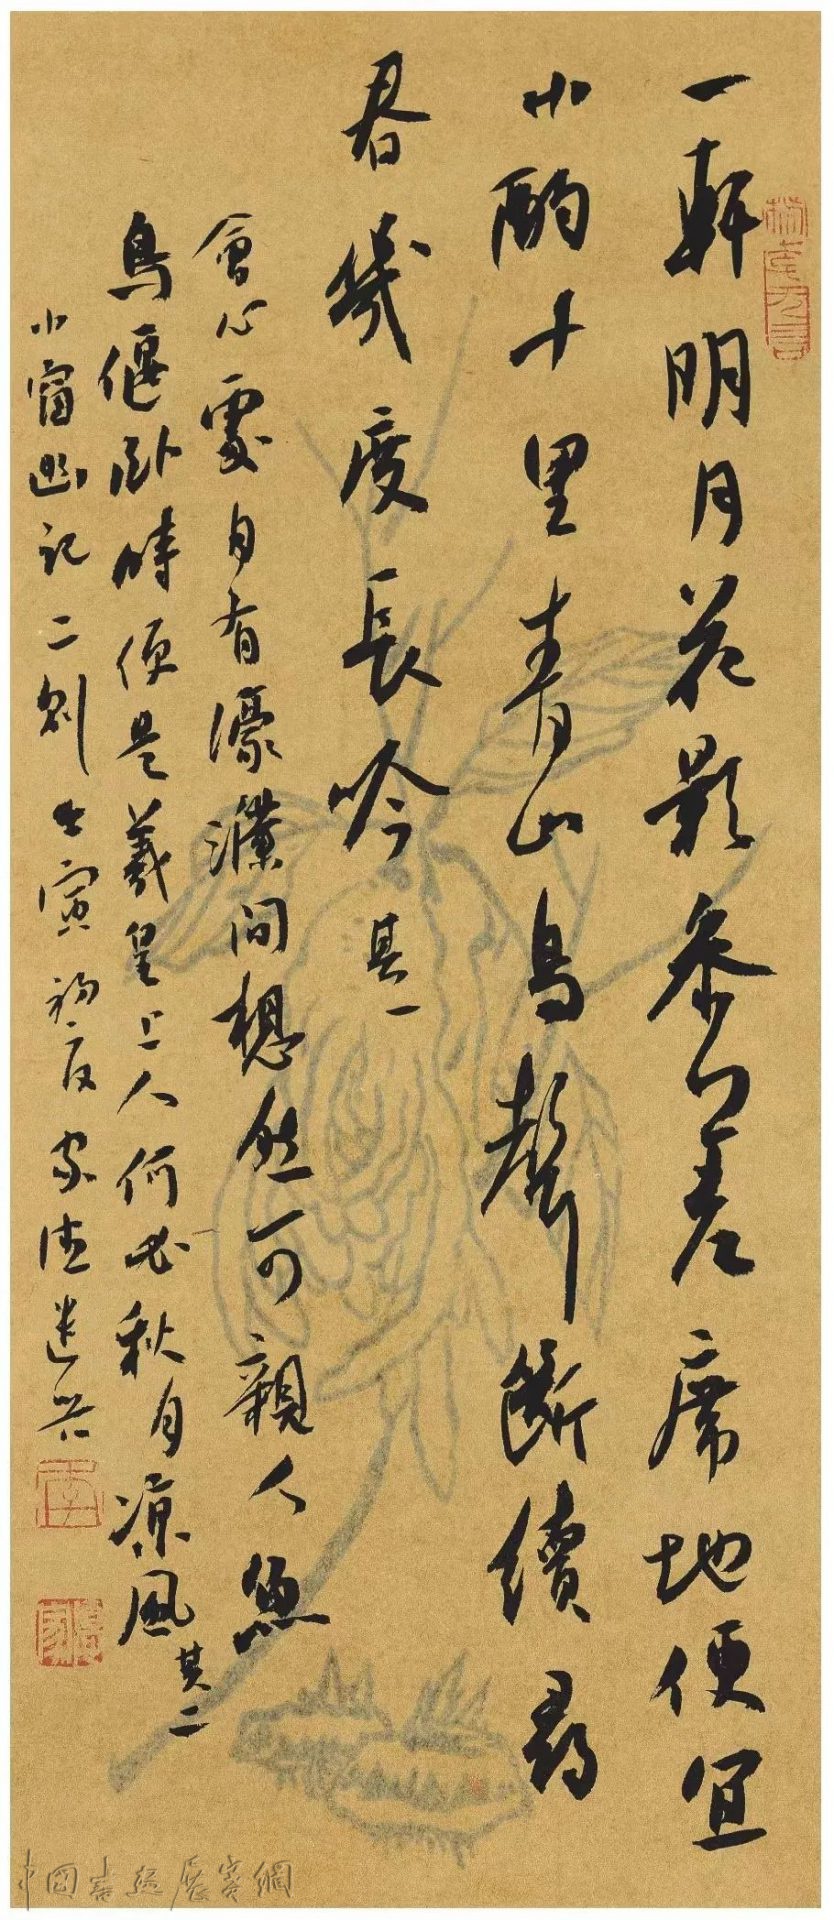 一軒明月花影參差席地便宜
小酌十里青山鳥聲斷續尋
春幾度長吟 其一
會心處自有濠濮間想然可親人魚
鳥偃卧時便是羲皇上人何必秋月凉風 其二
小窗幽記二則 壬寅初夏 家德造㠯
中國書法展賽網